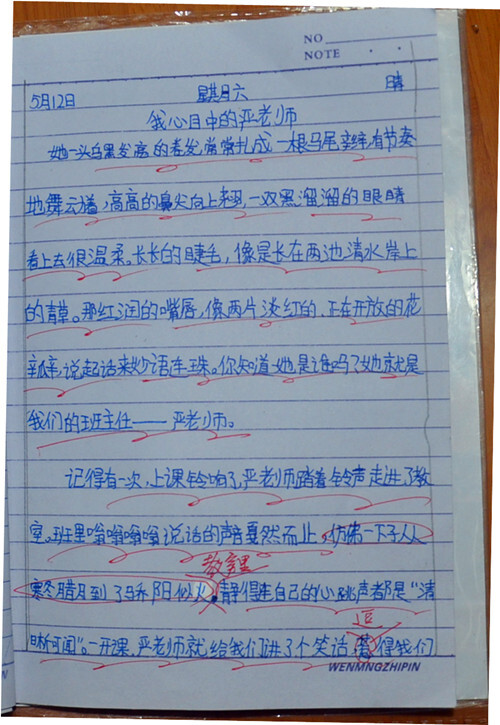 NO
NOTE
5月12日 星期六 晴
我心目中的严老师
她一头乌黑发亮的卷发常常扎成一根马尾辫,有节奏
地舞云摇,高高的鼻尖向上翘,一双黑溜溜的眼睛
看上去很温柔。长长的睫毛,像是长在两池清水岸上
的青草。那红润的嘴唇,像两片淡红的、正在开放的花
瓣,说起话来妙语连珠。你知道她是谁吗?她就是
我们的班主任——严老师。
记得有一次,上课铃响了,严老师踏着铃声走进了教
室。班里嗡嗡嗡嗡说话的声音戛然而止,仿佛一下子从
教室里
寒冬腊月到了骄阳似火,静得连自己的心跳声都是“清
逗
晰可闻”。一开课,严老师就给我们讲了个笑话,得我们
WENMNGZHIPIN